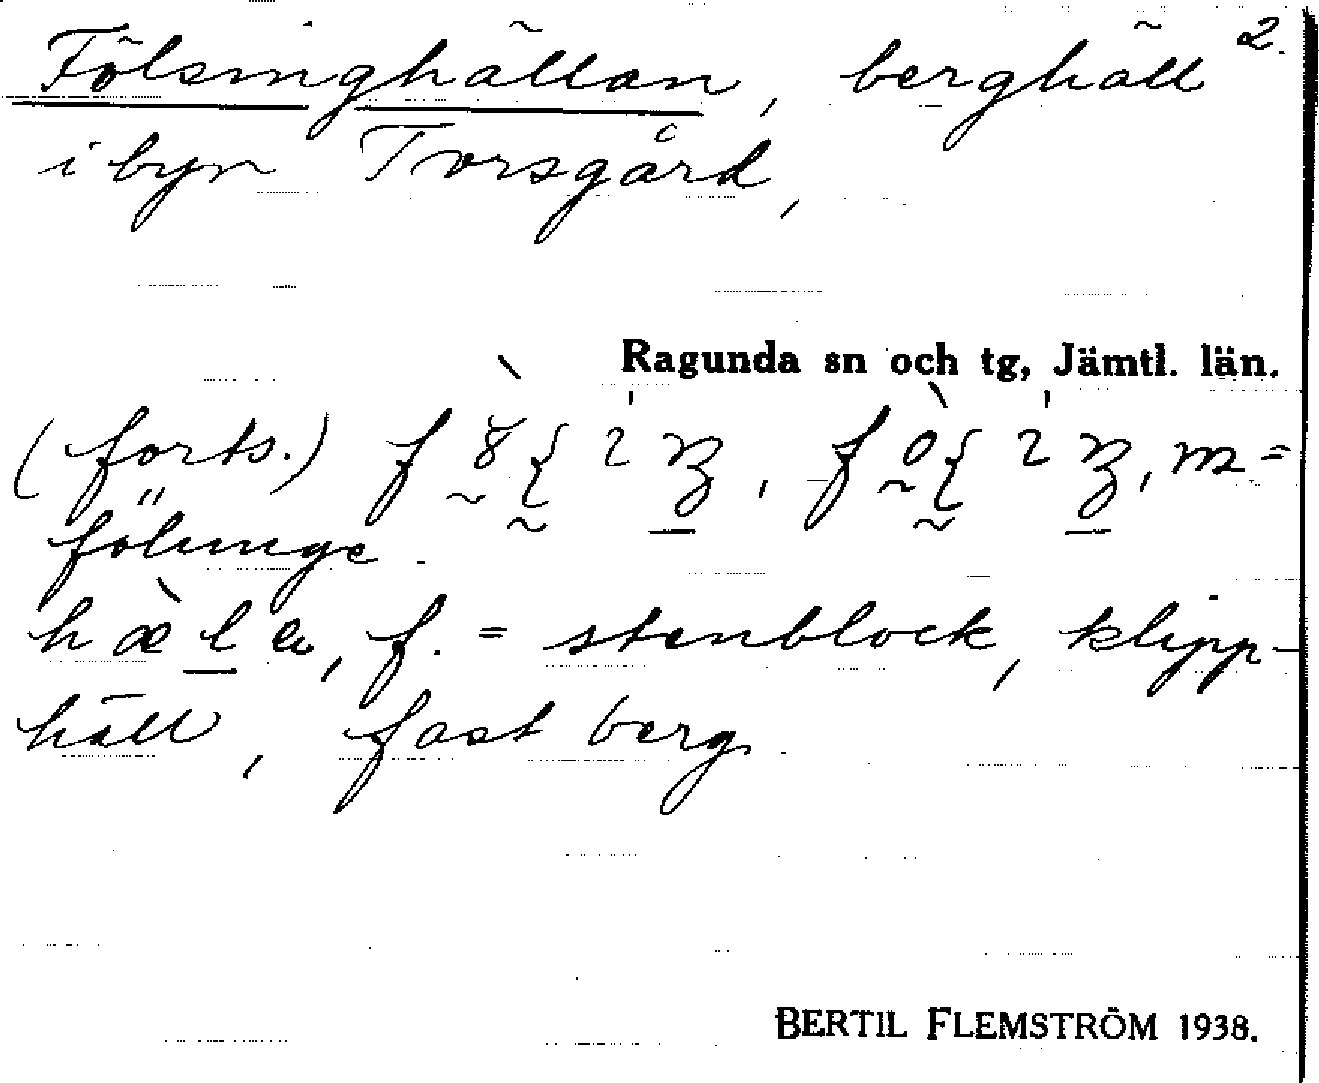 Fölsinghällan, berghäll 2.
i byn Torsgård,
Ragunda sn och tg, Jämtl. län.
(forts.)
fölunge.
f. = stenblock, klipp-
häll, fast berg.
BERTIL FLEMSTRÖM 1938.